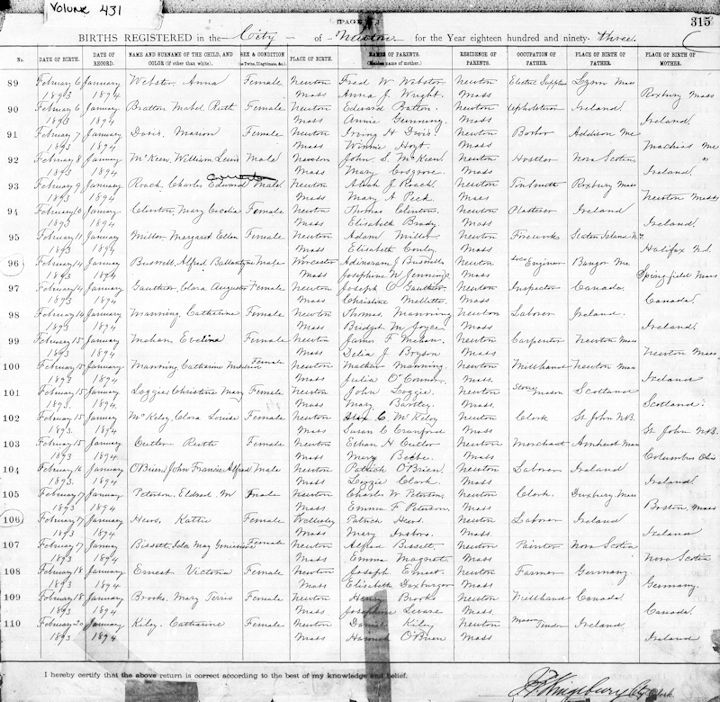 Volume 431
[PAGE
315
BIRTHS REGISTERED in the City of Newton for the Year eighteen hundred and ninety-three
No. DATE OF BIRTH. DATE OF RECORD. NAME AND SURNAME OF THE CHILD, AND COLOR (if other than white). SEX & CONDITION (as Twins, Illegitimate, &c.) PLACE OF BIRTH. NAMES OF PARENTS. (Maiden name of mother). RESIDENCE OF PARENTS. OCCUPATION OF FATHER. PLACE OF BIRTH OF FATHER. PLACE OF BIRTH OF MOTHER.
89 February 6 January Webster Anna Female Newton Fred W. Webster Newton Electric Supplies Lynn Mass
1893 1894 Mass Anna J. Wright Mass Roxbury Mass
90 February 6 January Mabel Ruth Female Newton Edward Newton Upholsterer Ireland
1893 1894 Mass Annie Mass Ireland
91 February 7 January Davis, Marion Female Newton Irving H Davis Newton Addison Me
1893 1894 Mass Winnie Hoyt Mass Machias Me
92 February 8 January McKeen, William Lewis Male Newton John S. McKeen Newton Hostler Nova Scotia
1893 1894 Mass Mary Cosgrove Mass Ireland
93 February 9 January Roach, Charles Edward Male Newton J. Roach Newton Roxbury Mass
1893 1894 Mass Mary A Peck Mass Newton Mass
94 February 10 January Clinton, Mary Cecelia Female Newton Thomas Clinton Newton Plasterer Ireland
1893 1894 Mass Elizabeth Brady Mass Ireland
95 February 11 January Miller Margaret Ellen Female Newton Adam Miller Newton Staten Island N.Y.
1893 1894 Mass Elizabeth Mass Halifax N.S.
96 February 14 January Alfred Male Worcester Newton Engineer Bangor Me
1893 1894 Mass Josephine W Jennings Mass Springfield Mass
97 February 14 January Gauthier, Clora Female Newton Joseph Gauthier Newton Inspector Canada
1893 1894 Mass Christine Mass Canada
98 February 14 January Manning Catharine Female Newton Thomas Manning Newton Laborer Ireland
1893 1894 Mass Bridget M Joyce Mass Ireland
99 February 15 January Evelina Female Newton James F Newton Carpenter Newton Mass
1893 1894 Mass Delia J Mass Newton Mass
100 February 15 January Manning, Catharine Female Newton Manning Newton Millhand Newton Mass
1893 1894 Mass Julia O'Connor Mass Ireland
101 February 15 January Christina May Female Newton John Newton Stone Mason Scotland
1893 1894 Mass Mary Mass Scotland
102 February 15 January McKiley, Clora Louise Female Newton Alex C McKiley Newton Clerk St John N.B.
1893 1894 Mass Susan C Cranford Mass St John N.B.
103 February 15 January Cutler Ruth Female Newton Ethan H Cutler Newton Merchant Amherst Mass
1893 1894 Mass Mary Beebe Mass Columbus Ohio
104 February 16 January O'Brien, John Francis Alfred Male Newton Patrick O'Brien Newton Laborer Ireland
1893 1894 Mass Lizzie Clark Mass Ireland
105 February 17 January Peterson, Eldred M Male Newton Charles W Peterson Newton Clerk Duxbury Mass
1893 1894 Mass Emma F Peterson Mass Boston Mass
106 February 17 January Hews, Kattie Female Wellesley Patrick Hews Newton Laborer Ireland
1893 1894 Mass Mary Mass Ireland
107 February 17 January Bissett, Ida May Genevieve Female Newton Alfred Bissett Newton Painter Nova Scotia
1893 1894 Mass Emma Mass Nova Scotia
108 February 18 January Ernest Victoria Female Newton Joseph Ernest Newton Farmer Germany
1893 1894 Mass Elizabeth Mass Germany
109 February 18 January Brooks, Mary Female Newton Henry Brooks Newton Millhand Canada
1893 1894 Mass Josephine Mass Canada
110 February 20 January Kiley, Catharine Female Newton Daniel Kiley Newton Mason Tender Ireland
1893 1894 Mass Hannah O'Brien Mass Ireland
I hereby certify that the above return is correct according to the best of my knowledge and belief.
Kingsbury City Clerk